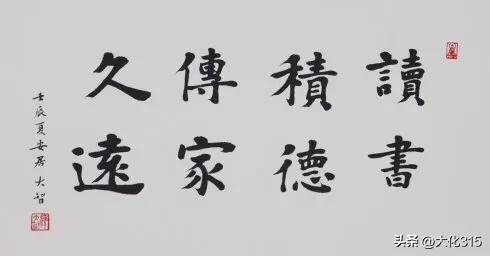 讀書
積德
傳家
久遠
壬辰夏安居大智
头条 @大化315